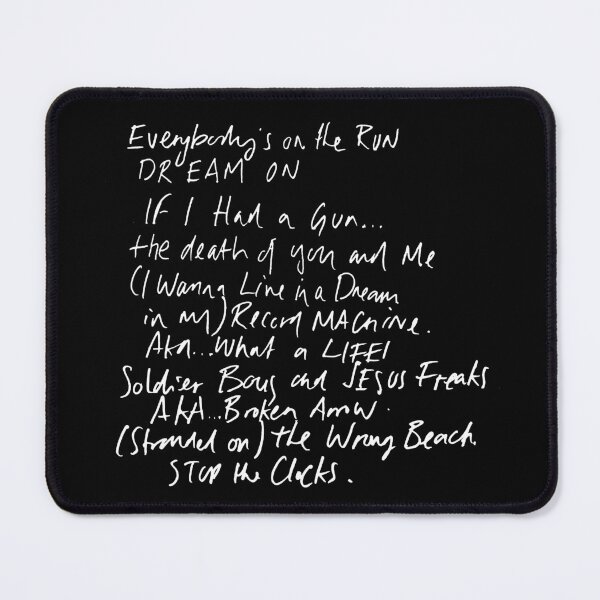 Everybody's on the RUN
DREAM ON
IF I Had a Gun...
the death of you and Me
(I Wanna Live in a Dream
in my) Record MACHINE.
AKA...What a LIFE!
Soldier Boys and JESUS Freaks
AKA...Broken Arrow.
(Stranded on) the Wrong Beach.
STOP the Clocks.